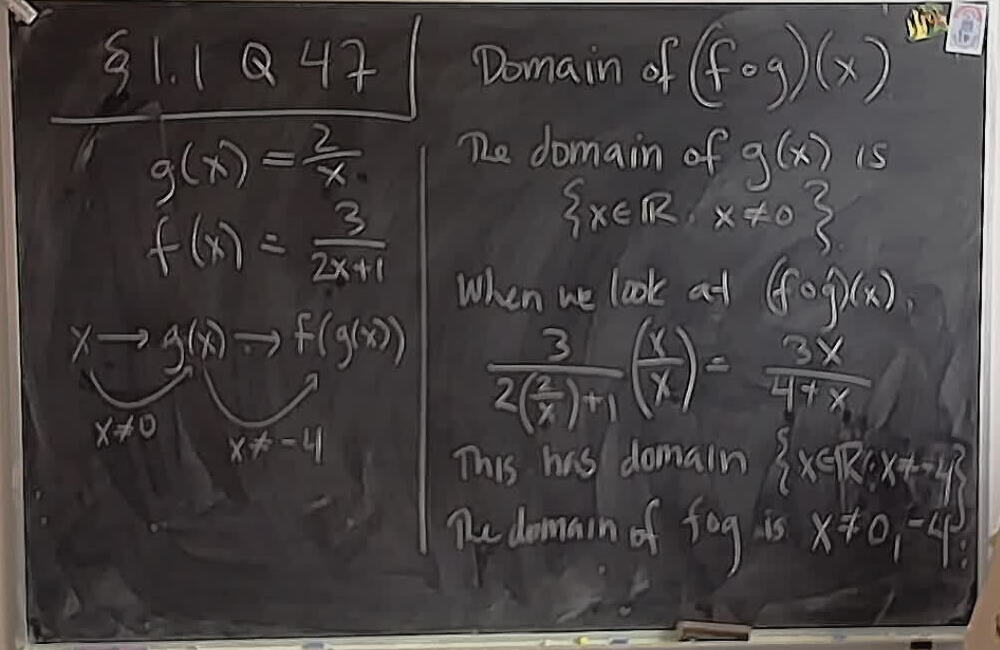 § 1.1 Q 47
g(x) = 2/x
f(x) = 3/(2x+1)
x → g(x) → f(g(x))
x≠0
x≠-4
Domain of (f∘g)(x)
The domain of g(x) is
{x∈ℝ: x≠0}
When we look at (f∘g)(x),
3/(2(2/x)+1) (x/x) = 3x/(4+x)
This has domain {x∈ℝ: x≠-4}
The domain of f∘g is x≠0, -4.